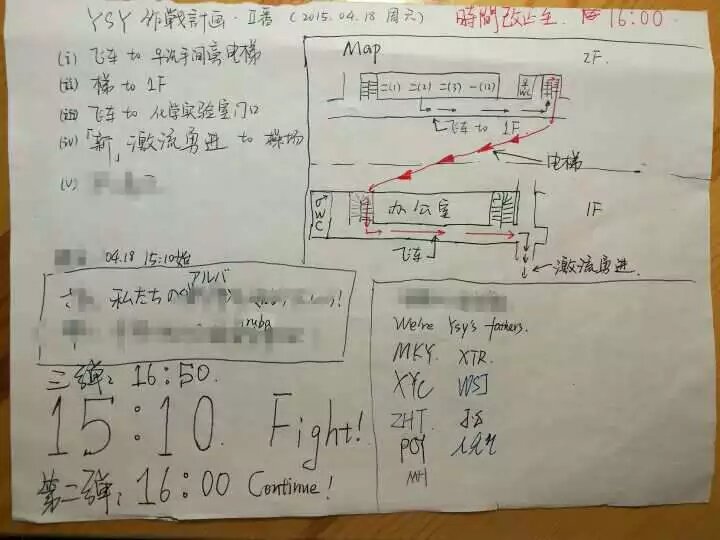 YSY 作戰計画・Ⅱ番 (2015.04.18 周六)
時間改止至 16:00
(i) 飞车 to 男洗手间旁电梯
(ii) 梯 to 1F
(iii) 飞车 to 化学实验室门口
(iv) 「新」激流勇进 to 操场
(v)
04.18 15:10始
アルバ
私たちの
inuba
三弹: 16:50.
15:10. Fight!
第二弹: 16:00 Continue!
Map
2F
二(1) 二(2) 二(3) —(12)
WC
飞车 to 1F
电梯
♂WC
办公室
1F
飞车
激流勇进.
We're Ysy's fathers.
MKY. XTR.
XYC WSJ
ZHT
POY
MH